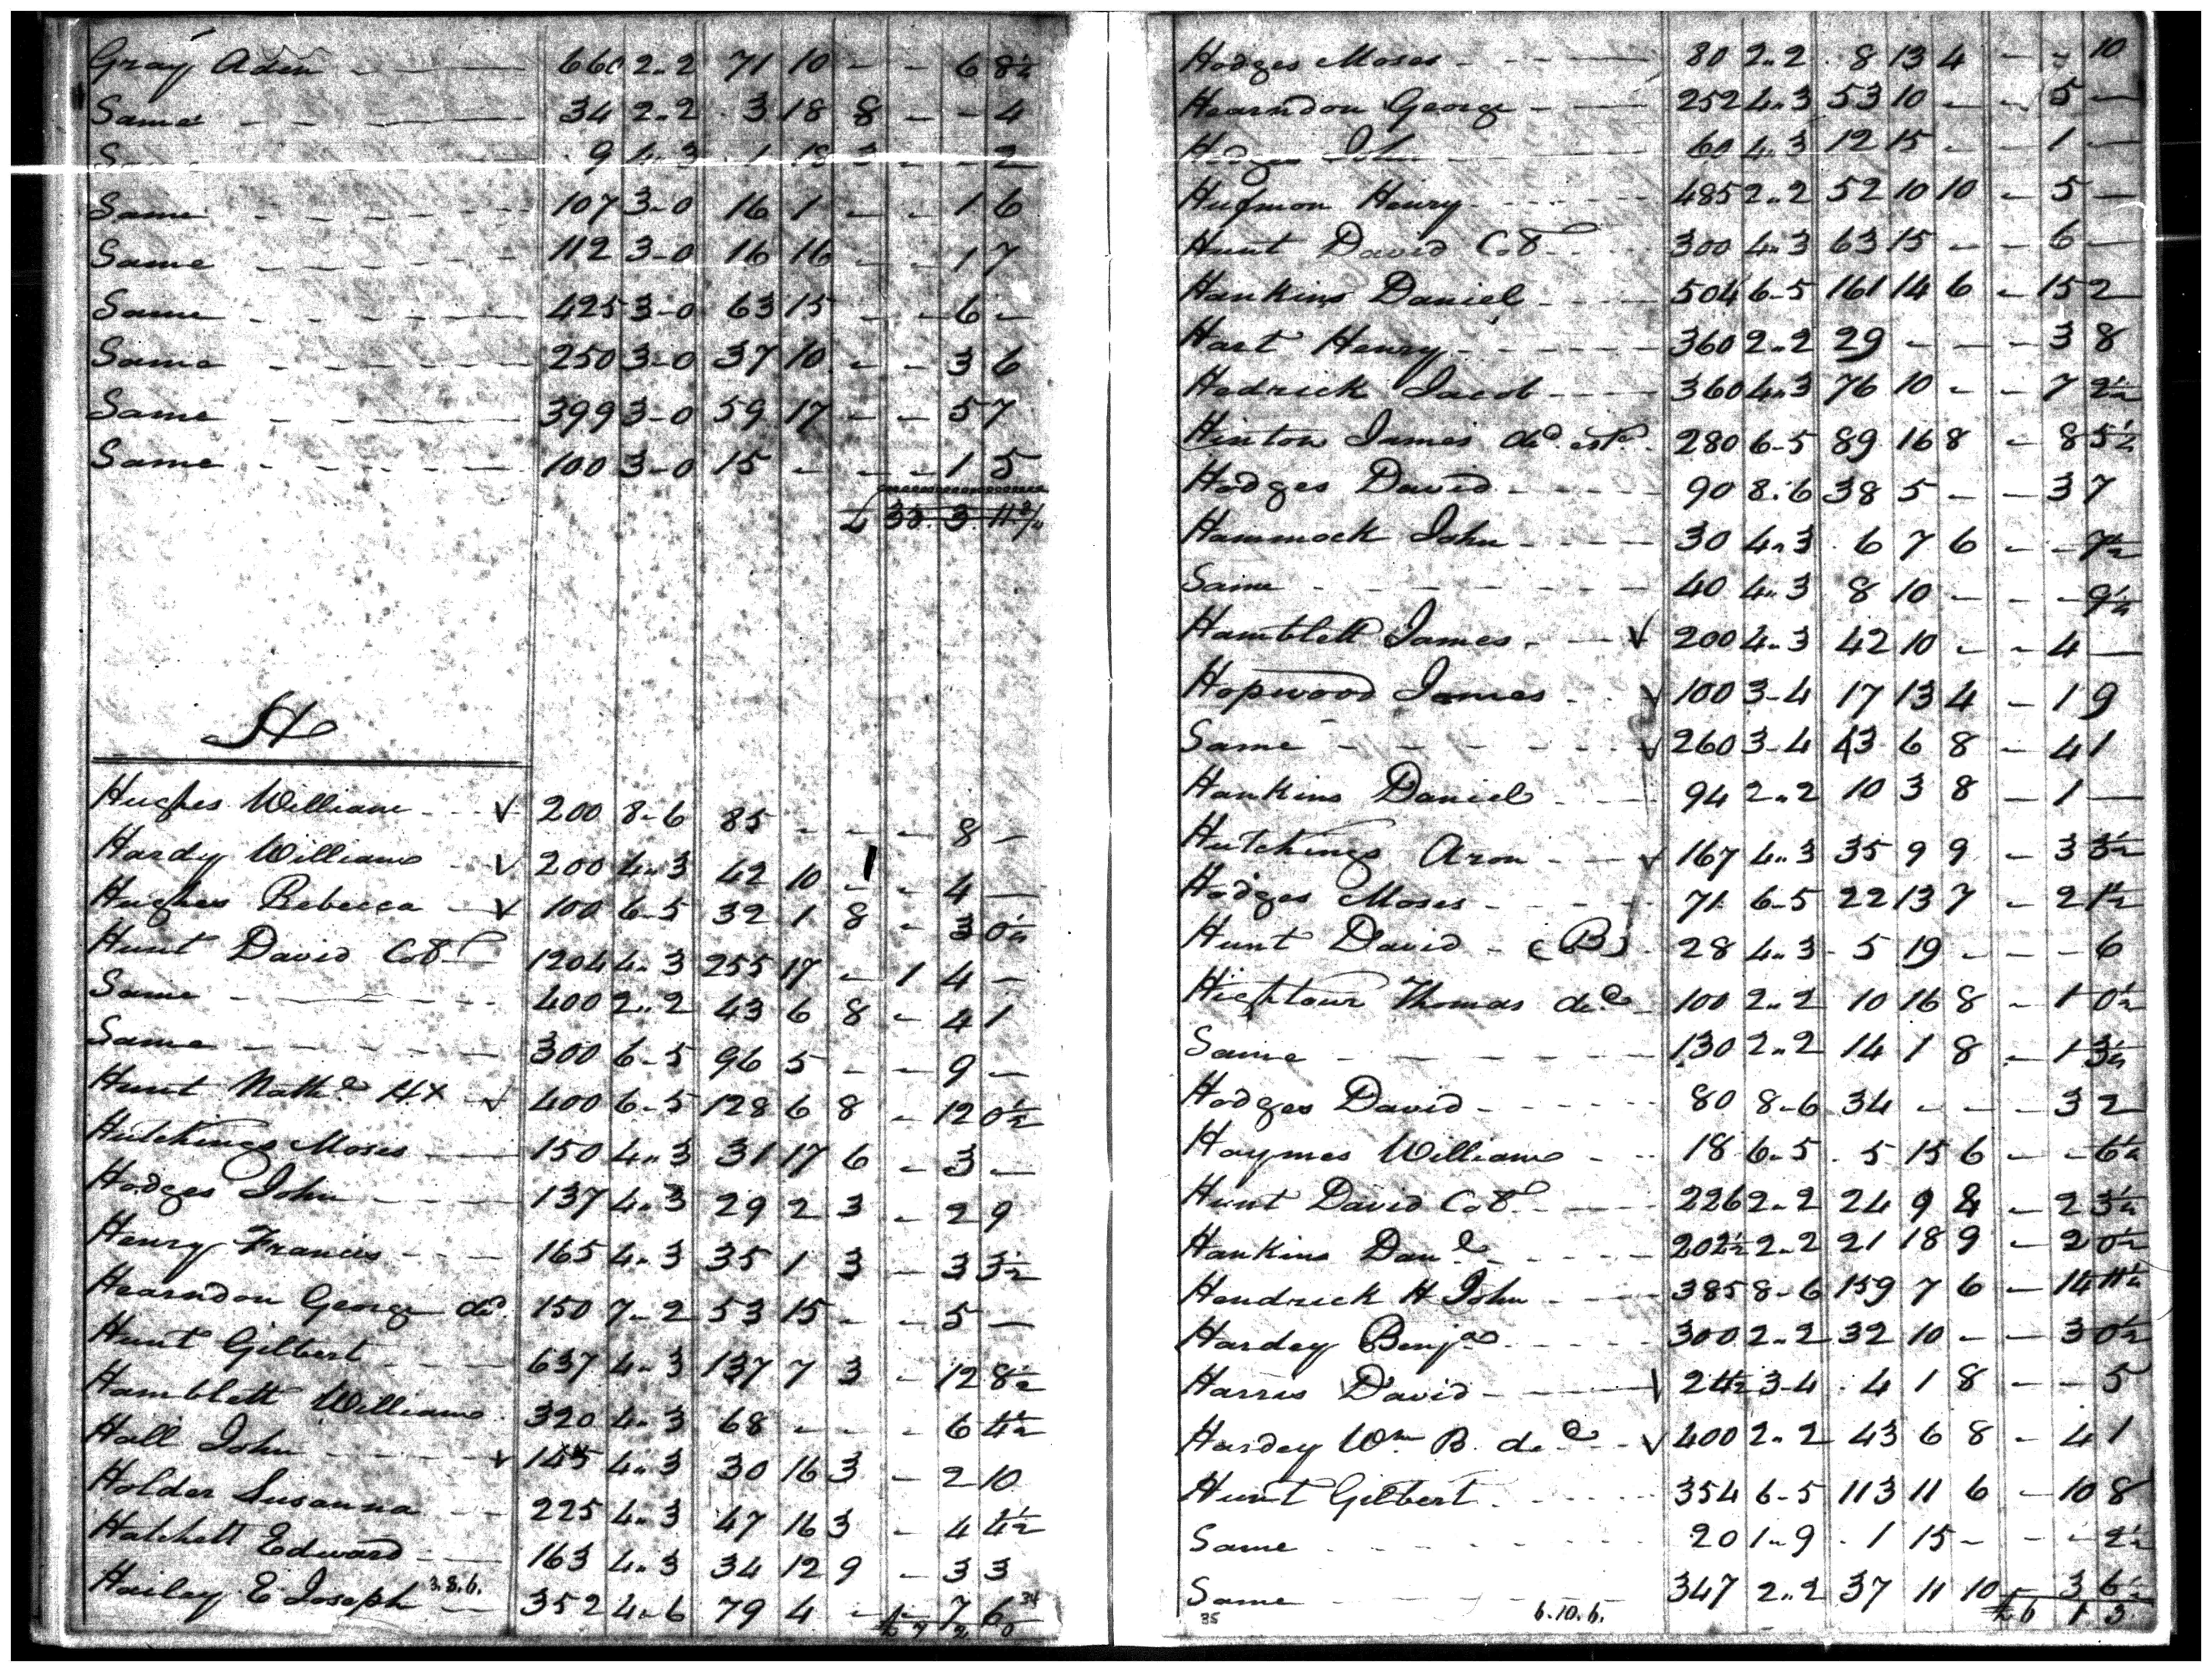 Gray Aden - - 660 2..2 71 10 - - 6 8½
Same - - - 34 2..2 3 18 8 - - 4
9 4..3 1 18 3 - - 2
Same - - - - - 107 3-0 16 1 - - 1 6
Same - - - - - 112 3-0 16 16 - - 1 7
Same - - - - - 425 3-0 63 15 - - 6 -
Same - - - - - 250 3-0 37 10 - - 3 6
Same - - - 399 3-0 59 17 - - 5 7
Same - - - - - 100 3-0 15 - - - 1 5
£ 33 3 11¾
H
Hughes William - - - √ 200 8-6 85 - - - 8 -
Hardy William - - √ 200 4..3 42 10 - - 4 -
Hughes Rebecca - √ 100 6-5 32 1 8 - 3 0½
Hunt David Col 1204 4..3 255 17 - 1 4 -
Same - - - - 400 2..2 43 6 8 - 4 1
Same - - - - - 300 6-5 96 5 - - 9 -
Hunt Nathl HX √ 400 6-5 128 6 8 - 12 0½
Hutchings Moses - 150 4..3 31 17 6 - 3 -
Hodges John - - 137 4..3 29 2 3 - 2 9
Henry Francis - - - 165 4..3 35 1 3 - 3 3½
Hearndon George decd 150 7-2 53 15 - - 5 -
Hunt Gilbert - - - - 637 4..3 137 7 3 - 12 8½
Hamblett William 320 4..3 68 - - - 6 4½
Hall John - - - - √ 145 4..3 30 16 3 - 2 10
Holder Susanna - - 225 4..3 47 16 3 - 4 4½
Hatchett Edward - - 163 4..3 34 12 9 - 3 3
Hailey E Joseph 3.8.6. 352 4..6 79 4 - - 7 6
34
£ 7 2 0
Hodges Moses - - - 80 2..2 8 13 4 - - 10
Hearndon George - - 252 4..3 53 10 - - 5 -
Hodges John 60 4..3 12 15 - - 1 -
Hugmon Henry - - - - 485 2..2 52 10 10 - 5 -
Hunt David Col - - - 300 4..3 63 15 - - 6 -
Hankins Daniel - - - - 504 6-5 161 14 6 - 15 2
Hart Henry - - - - - - 360 2..2 29 - - - 3 8
Hedrick Jacob - - - - 360 4..3 76 10 - - 7 2½
Hinton James decd este 280 6-5 89 16 8 - 8 5½
Hodges David - - - - - 90 8.6 38 5 - - 3 7
Hammock John - - - - 30 4..3 6 7 6 - - 7½
Same - - - - - - - 40 4..3 8 10 - - - 9½
Hamblett James - - √ 200 4..3 42 10 - - 4 -
Hopwood James - - √ 100 3-4 17 13 4 - 1 9
Same - - - - - - √ 260 3-4 43 6 8 - 4 1
Hankins Daniel - - - 94 2..2 10 3 8 - 1 -
Hutchings Aron - - - √ 167 4..3 35 9 9 - 3 3½
Hodges Moses - - - - 71 6-5 22 13 7 - 2 1½
Hunt David - (B) 28 4..3 5 19 - - - 6
Hightour Thomas decd 100 2..2 10 16 8 - 1 0½
Same - - - - - - - 130 2..2 14 1 8 - 1 3½
Hodges David - - - - - 80 8-6 34 - - - 3 2
Haymes William - - - 18 6-5 5 15 6 - - 6½
Hunt David Col - - - 226 2..2 24 9 8 - 2 3½
Hankins Danl - - - - 202½ 2..2 21 18 9 - 2 0½
Hendrick H John - - - 385 8-6 159 7 6 - 14 11½
Hardey Benja - - - - 300 2..2 32 10 - - 3 0½
Harris David - - - - √ 24½ 3-4 4 1 8 - - 5
Hardey Wm B. decd - - √ 400 2..2 43 6 8 - 4 1
Hunt Gilbert - - - - - 354 6-5 113 11 6 - 10 8
Same - - - - - - - 20 1..9 1 15 - - - 2½
Same - - - - - - 347 2..2 37 11 10 - 3 6½
35 6.10.6. £ 6 1 3